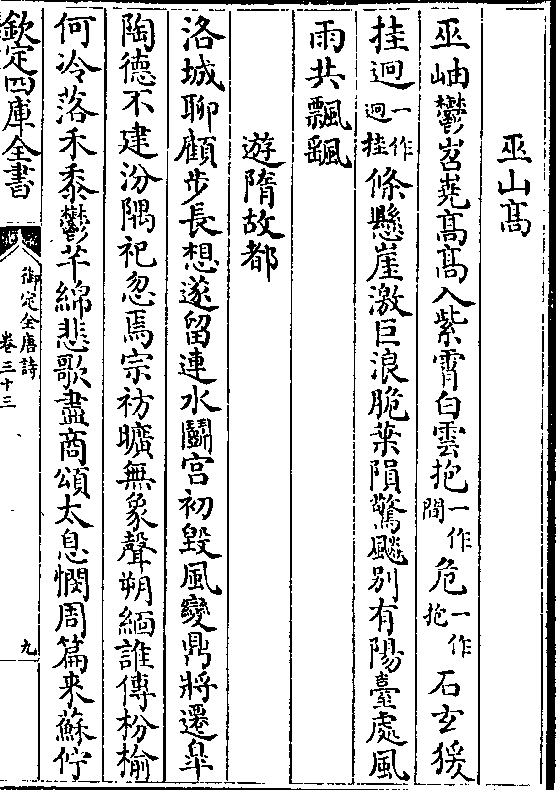 巫山髙
巫岫鬱岧嶤髙髙入紫霄白雲抱一作間危一作抱石玄猨
挂迥一作迥挂條懸崖激巨浪脆葉隕驚飈别有陽臺處風
雨共飄飖
遊隋故都
洛城聊顧步長想遂留連水鬭宫初毀風變鼎將遷臯
陶德不建汾隅祀忽焉宗祊曠無象聲朔緬誰傳枌榆
何冷落禾黍鬱芊綿悲歌盡商頌太息憫周篇来蘇佇
欽定四庫全書
御定全唐詩
卷三十三
九